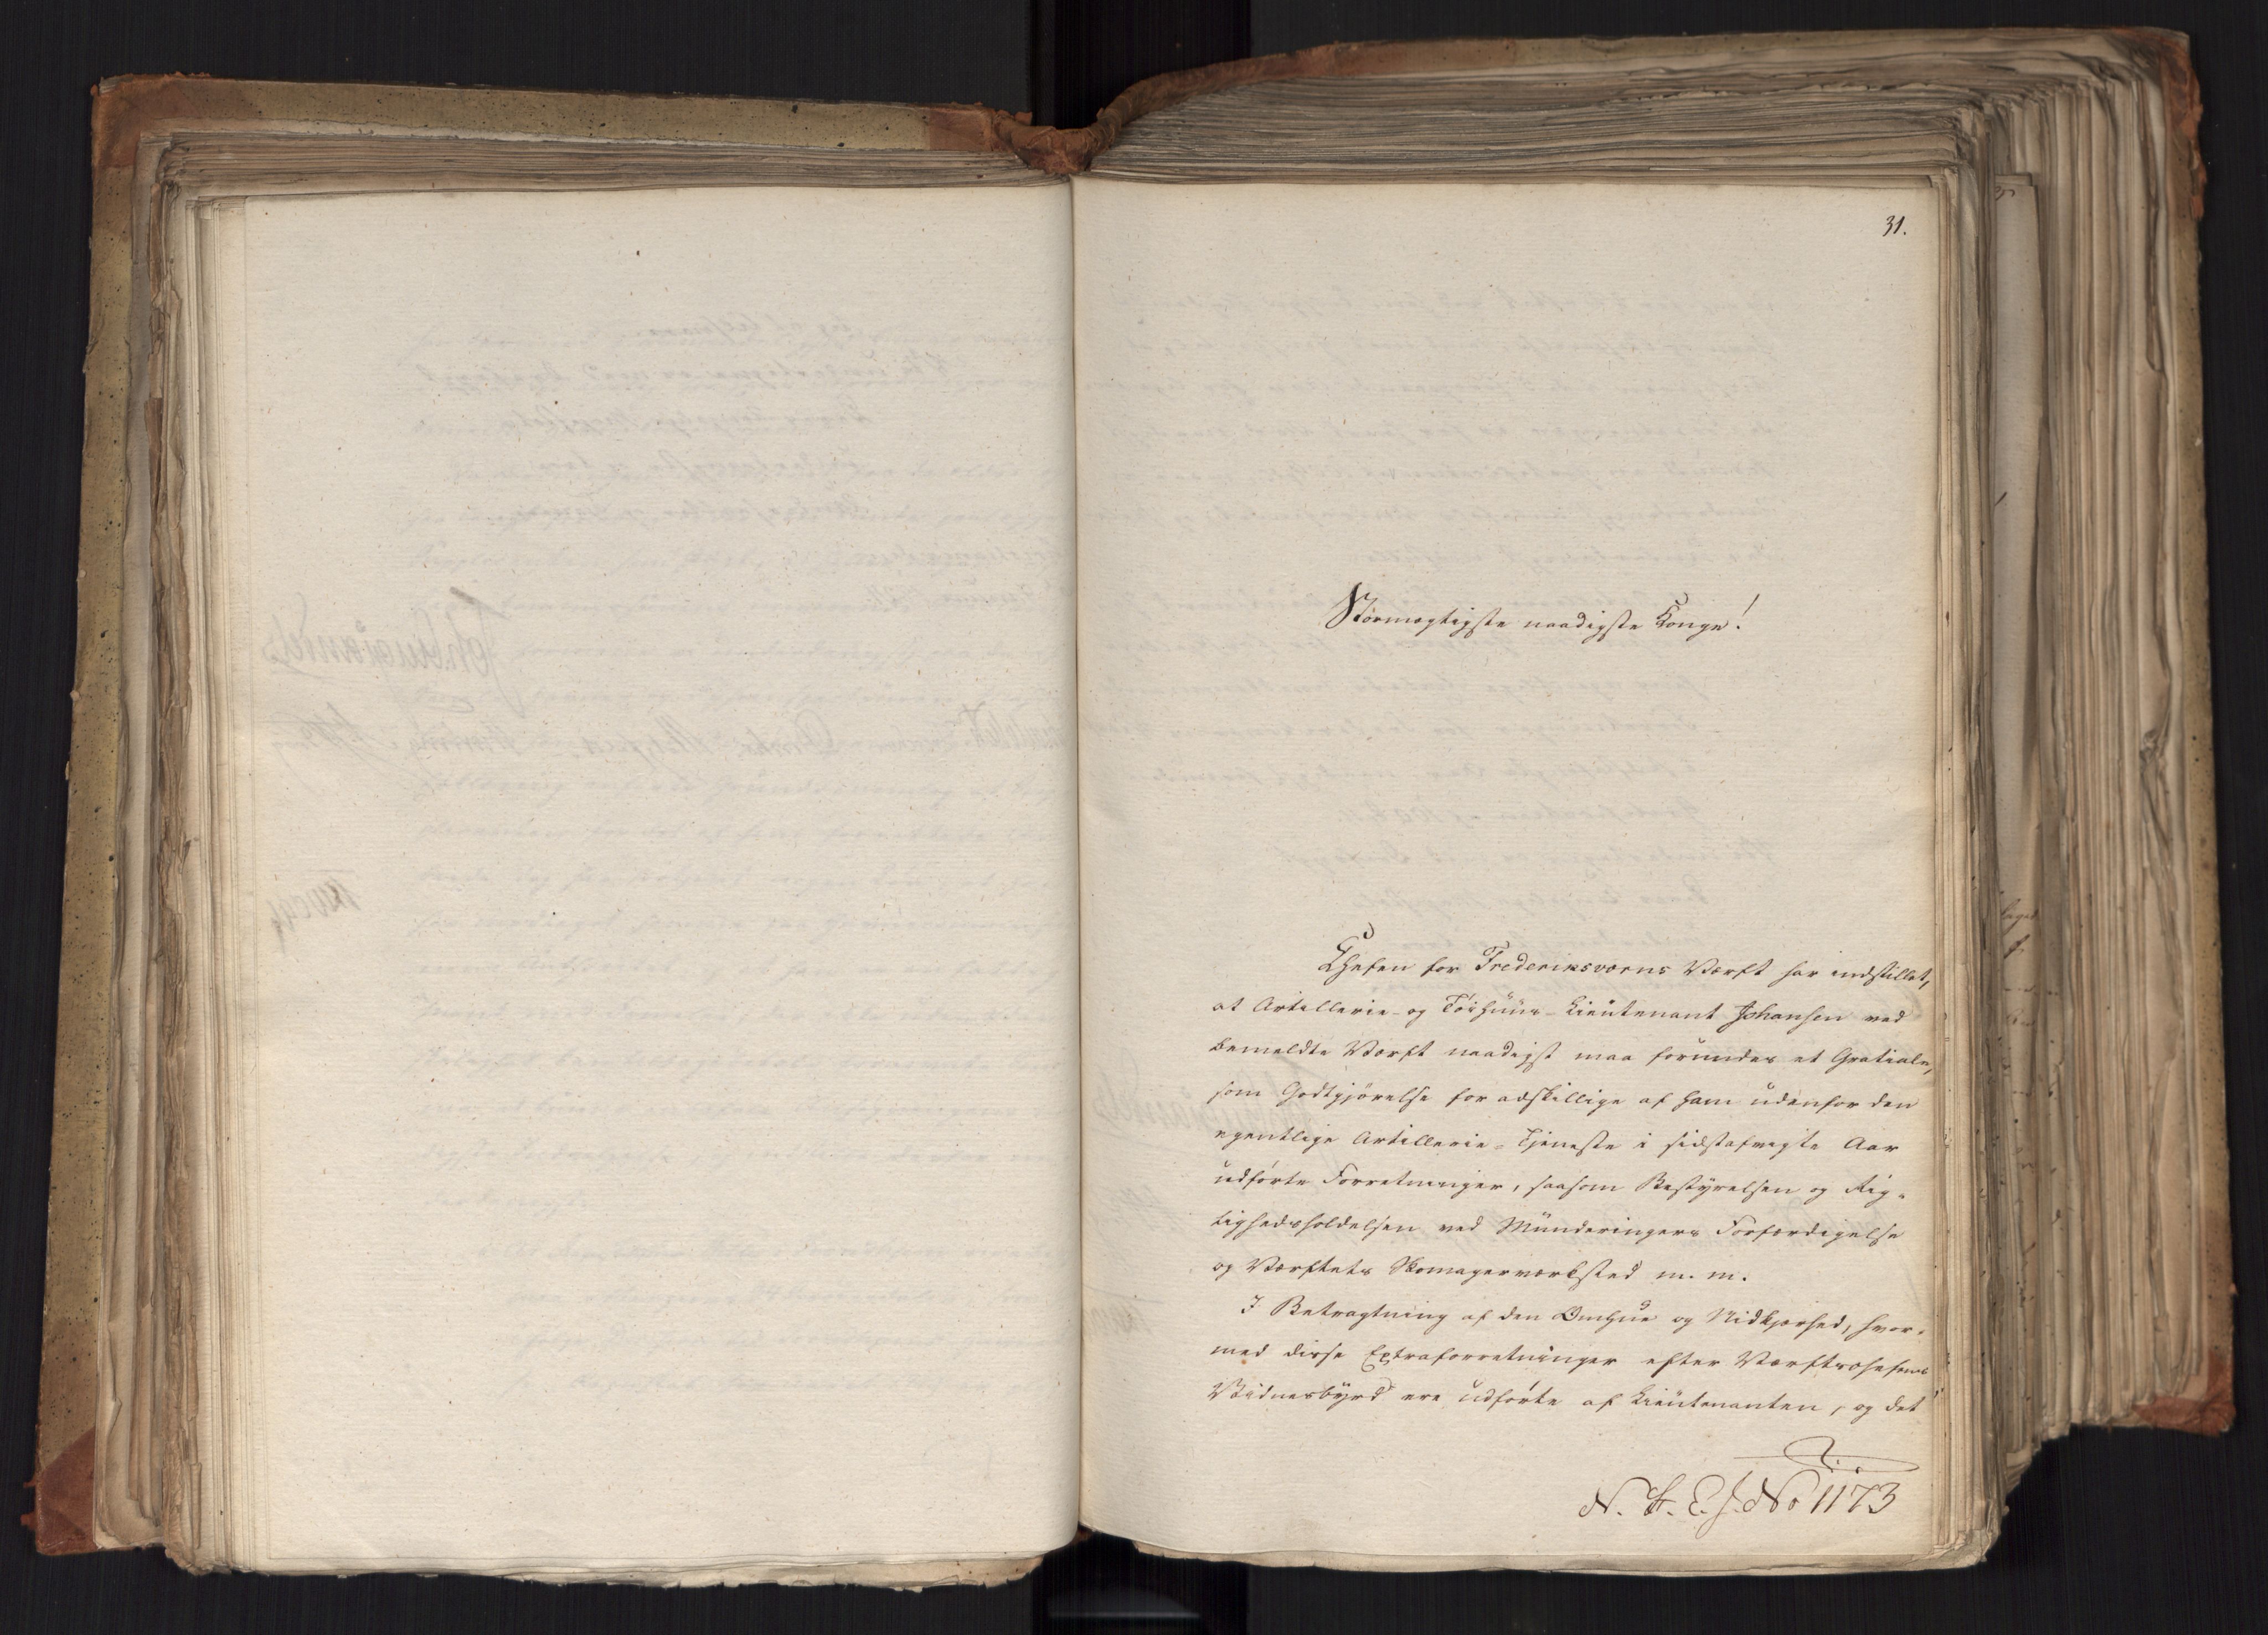 31.
Stormægtigste naadigste Konge!
Chefen for Frederiksværns Værft har indstillet,
at Artillerie- og Töihuus-Lieutenant Johansen ved
bemeldte Værft naadigst maa forundes et Gratiale,
som Godtgjörelse for adskillige af ham udenfor den
egentlige Artillerie-Tjeneste i sidstafvigte Aar
udförte Forretninger, saasom Bestyrelsen og Rig-
tighedsholdelsen ved Munderingers Forfærdigelse
og Værftets Skomagerværksted m. m.
I Betragtning af den Omhue og Nidkjærhed, hvor-
med disse Extraforretninger efter Værftschefens
Vidnesbyrd ere udförte af Lieutenanten, og det
No 1173